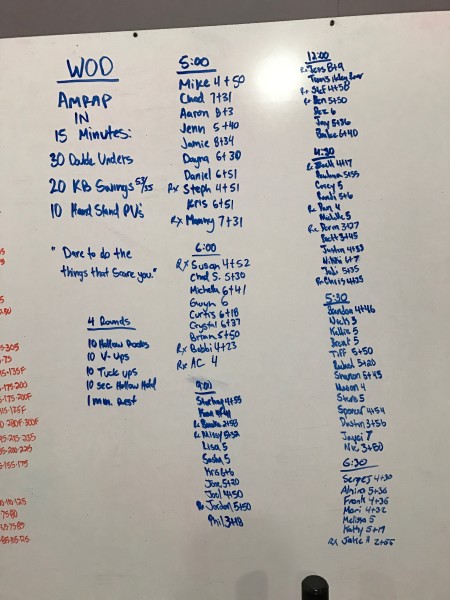 WOD
AMRAP
IN
15 Minutes:
30 Double Unders
20 KB Swings 53/35
10 Hand Stand PU's
"Dare to do the
things that scare you."
4 Rounds
10 Hollow Rocks
10 V-ups
10 Tuck ups
10 sec Hollow Hold
1 min. Rest
5:00
Mike 4+50
Chad 7+31
Aaron 8+3
Jenn 5+40
Jamie 8+34
Dayna 6+30
Daniel 6+51
Rx Steph 4+51
Kris 6+51
Rx Manny 7+31
6:00
Rx Susan 4+52
Chad S. 5+30
Michelle 6+41
Gwyn 6
Curtis 6+18
Crystal 6+37
Brian 5+50
Rx Bobbi 4+23
Rx AC 4
9:00
Sterling 4+55
Rx Missy 5+32
Lisa 5
Sasha 5
Kris 6+6
Jose 5+20
Joel 4+50
Rx Jordan 5+50
Phil 3+18
12:00
Rx Jess 8+9
Rx Stef 4+58
Rx Ben 5+50
Dez 6
Jay 5+36
6+40
4:30
Rx 4+17
Corey 5
5+6
Rx Pam 4
Michelle 5
Rx 3+27
Brett 3+45
Justin 4+33
Nikki 6+7
5+35
Rx Chris 4+25
5:30
Brandon 4+46
Nick 3
Kellie 5
Brent 5
Tiff 5+50
5+20
Shannon 5+43
Mason 4
5
Spencer 4+54
Dustin 3+56
Jayci 7
Nic 3+50
6:30
Sergej 4+30
5+36
Frank 4+36
Mari 4+32
Melissa 5
Kathy 5+19
Rx Jake A 2+55